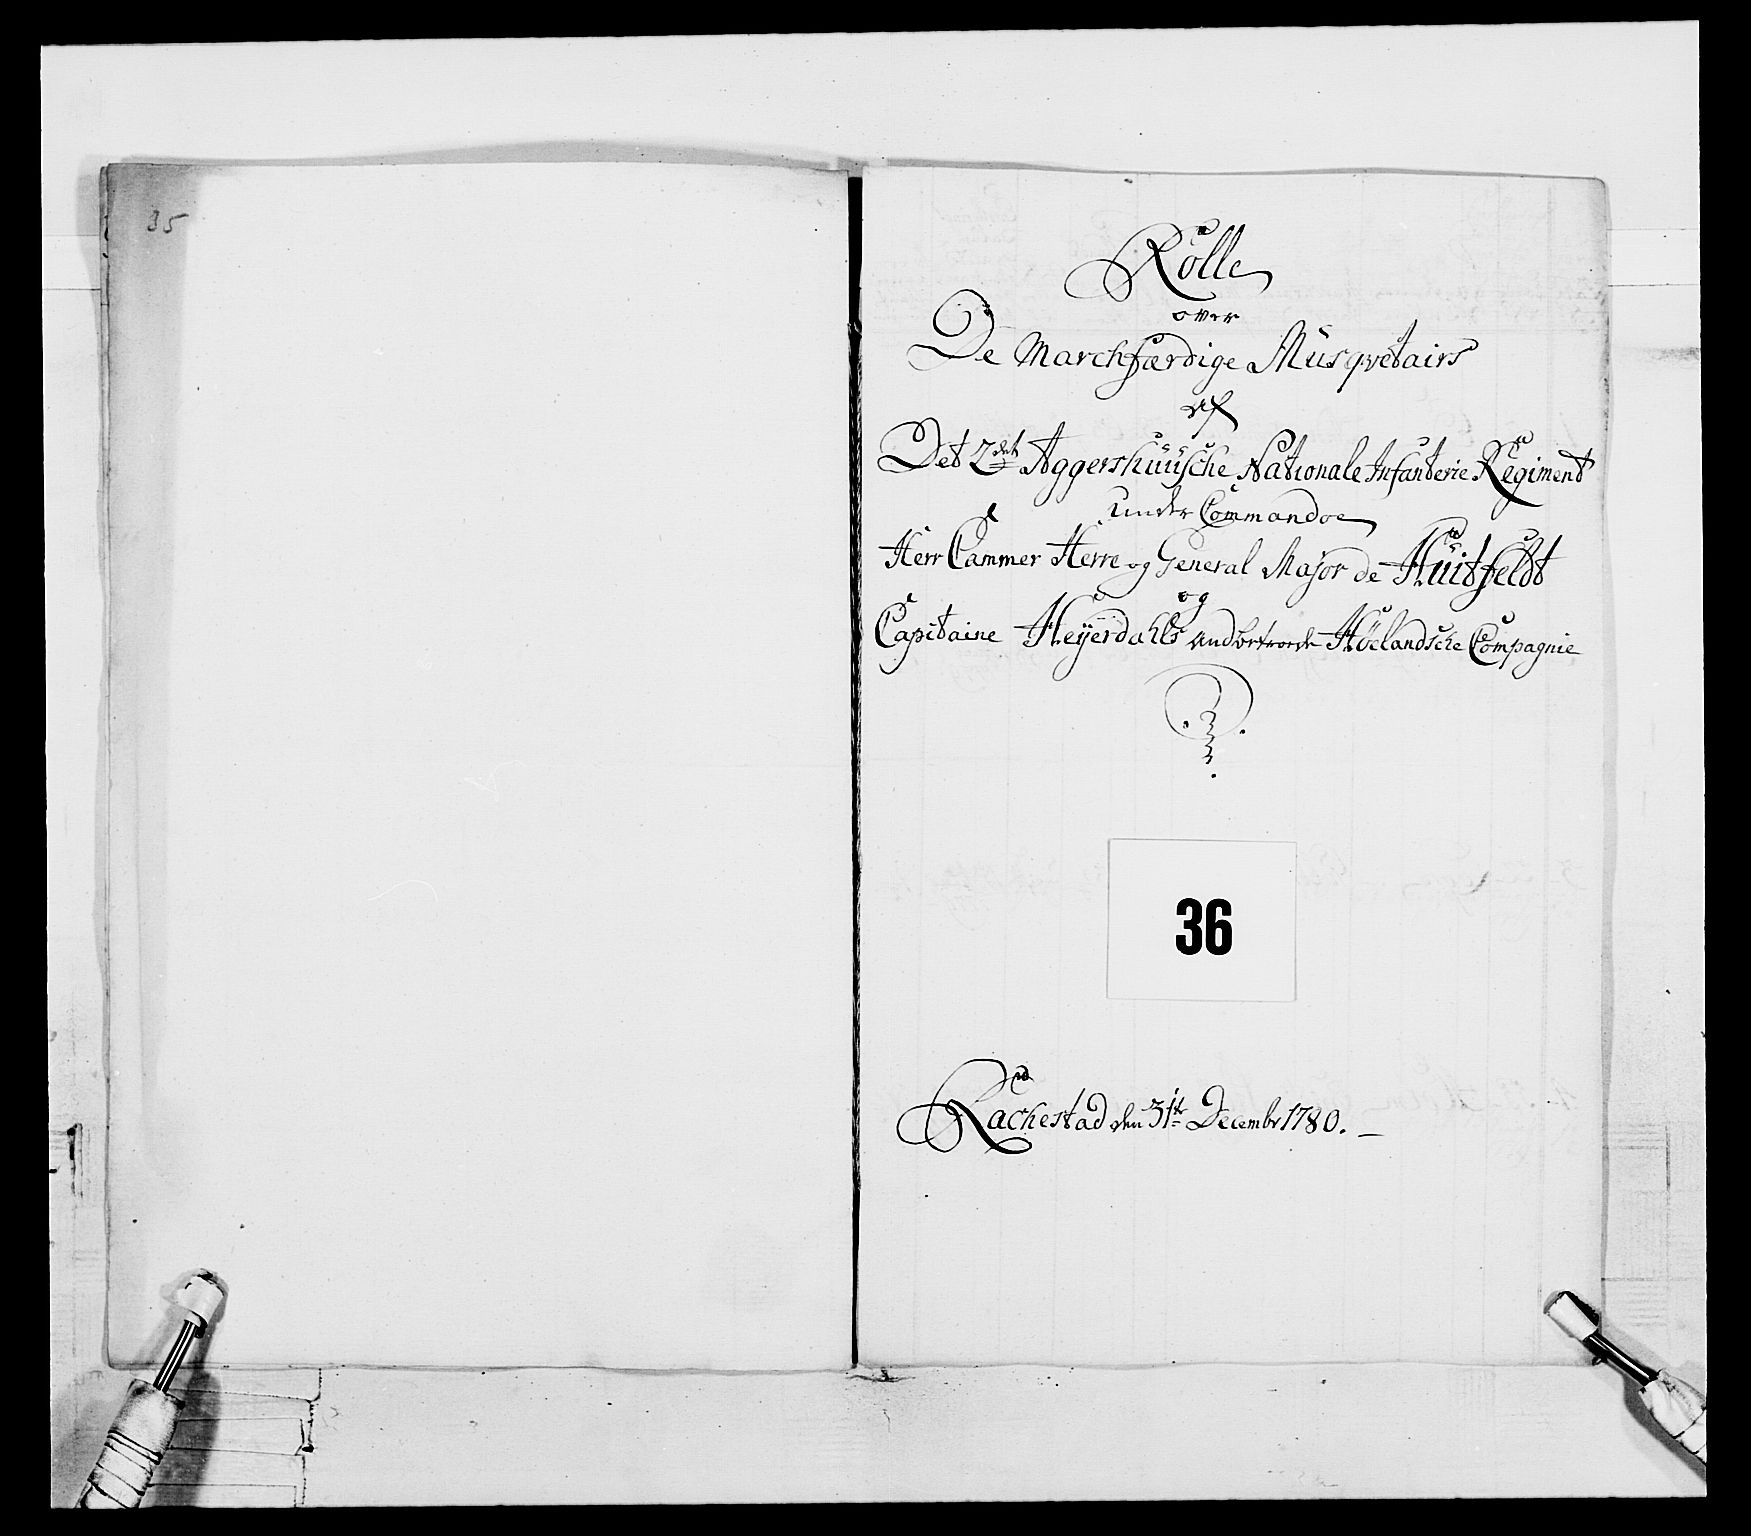 35
Rolle
over
De Marchfærdige Musqvetairs
af
Det 2det Aggershuusche Nationale Infanterie Regiment
under Commandoe
Herr Cammer Herre og General Major de Huitfeldt
og
Capitaine Heyerdahls andbetroede Höelandsche Compagnie
36
Rachestad den 31te Decembr 1780.